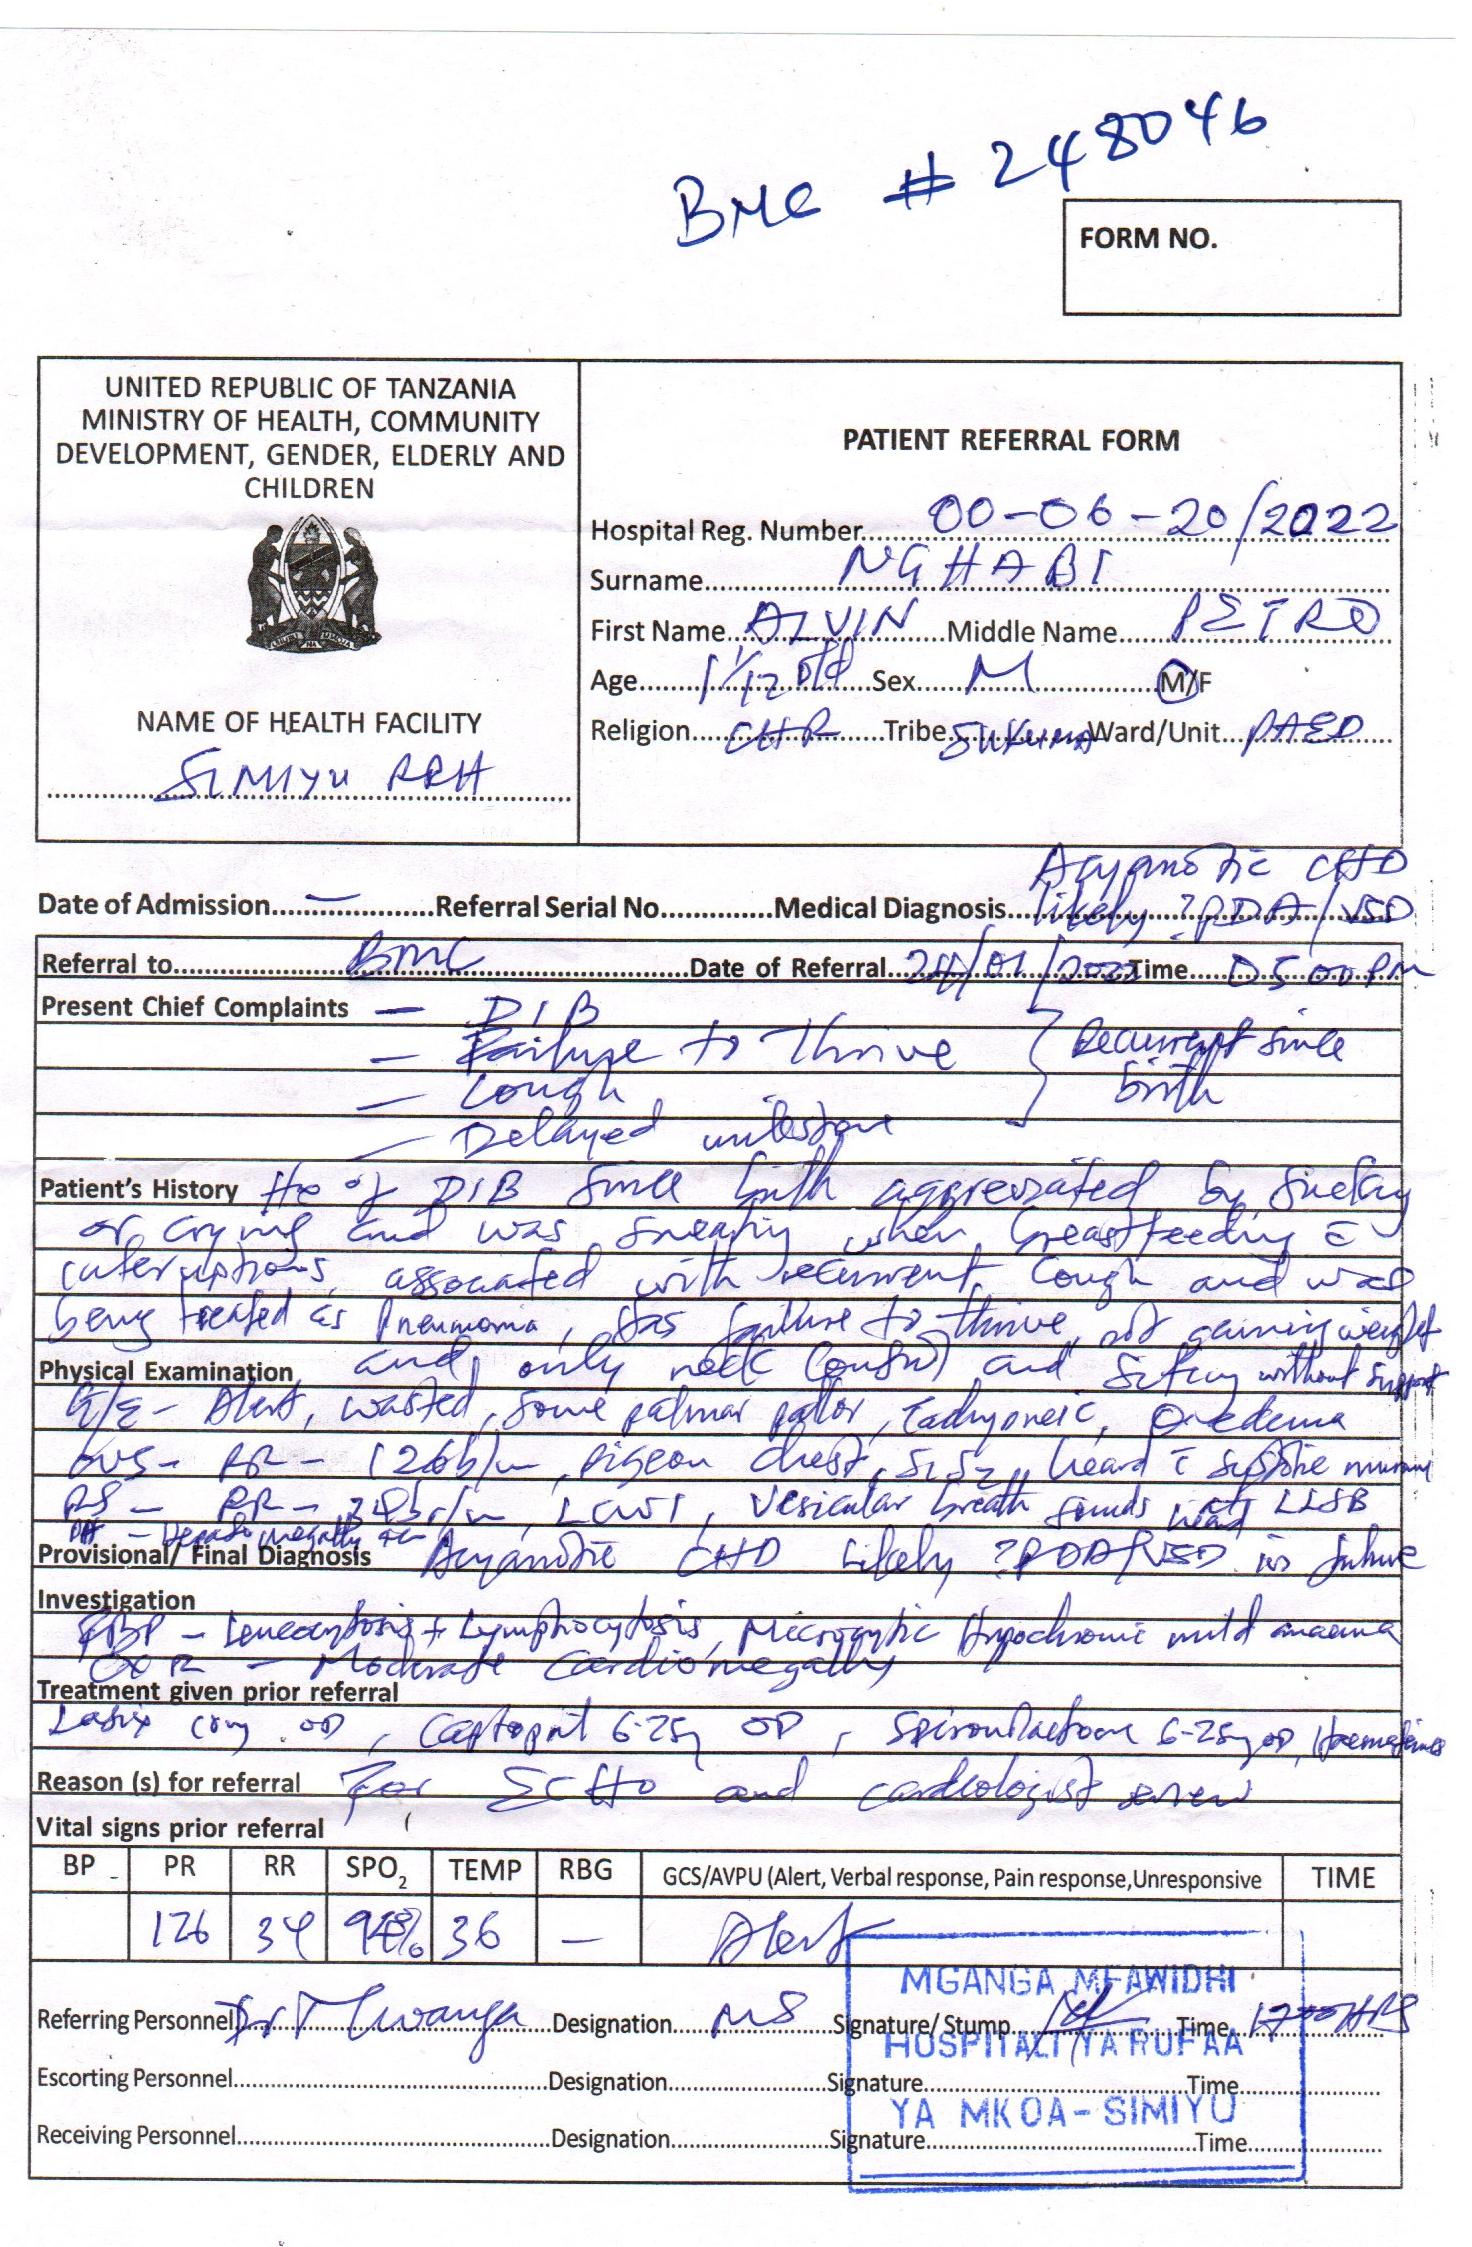 BMC # 248046
FORM NO.
UNITED REPUBLIC OF TANZANIA
MINISTRY OF HEALTH, COMMUNITY
DEVELOPMENT, GENDER, ELDERLY AND
CHILDREN
NAME OF HEALTH FACILITY
SIMIYU RRH
PATIENT REFERRAL FORM
Hospital Reg. Number 00-06-20/2022
Surname NGHABI
First Name ALVIN Middle Name PETRO
Age 1 1/12 old Sex M M/F
Religion CHR Tribe SUKUMA Ward/Unit PAED
Acyanotic CHD
Date of Admission — Referral Serial No. Medical Diagnosis likely ?PDA/VSD
Referral to BMC Date of Referral 24/01/2022 Time 05 00PM
Present Chief Complaints — DIB
— Failure to thrive } Recurrent since
— Cough birth
— Delayed milestone
Patient's History Hx of DIB since birth aggrevated by sucking
or crying and was sweating when breastfeeding c̄
interruptions, associated with recurrent cough and was
being treated as Pneumonia, has failure to thrive, not gaining weight
and only neck control and sitting without support
Physical Examination
G/E - Alert, wasted, some palmar pallor, tachypneic, oedema
CVS - PR - 126b/m, pigeon chest, S1S2 heard c̄ systolic murmur
RS - RR - br/m, LCWI, Vesicular breath sounds heard LLSB
PA - Hepatomegally
Provisional/ Final Diagnosis Acyanotic CHD likely ?PDA/VSD in failure
Investigation
FBP - Leucocytosis + Lymphocytosis, Microcytic Hypochromic mild anaemia
CXR - Moderate Cardiomegally
Treatment given prior referral
Lasix OD, Captopril 6.25mg OD, Spironolactone 6.25mg OD, Haematinics
Reason (s) for referral For ECHO and cardiologist review
Vital signs prior referral
BP PR RR SPO2 TEMP RBG GCS/AVPU (Alert, Verbal response, Pain response,Unresponsive TIME
126 34 % 36 — Alert
MGANGA MFAWIDHI
Referring Personnel Dr Designation MS Signature/ Stump Time 1700HRS
HOSPITALI YA RUFAA
Escorting Personnel Designation Signature Time
YA MKOA - SIMIYU
Receiving Personnel Designation Signature Time